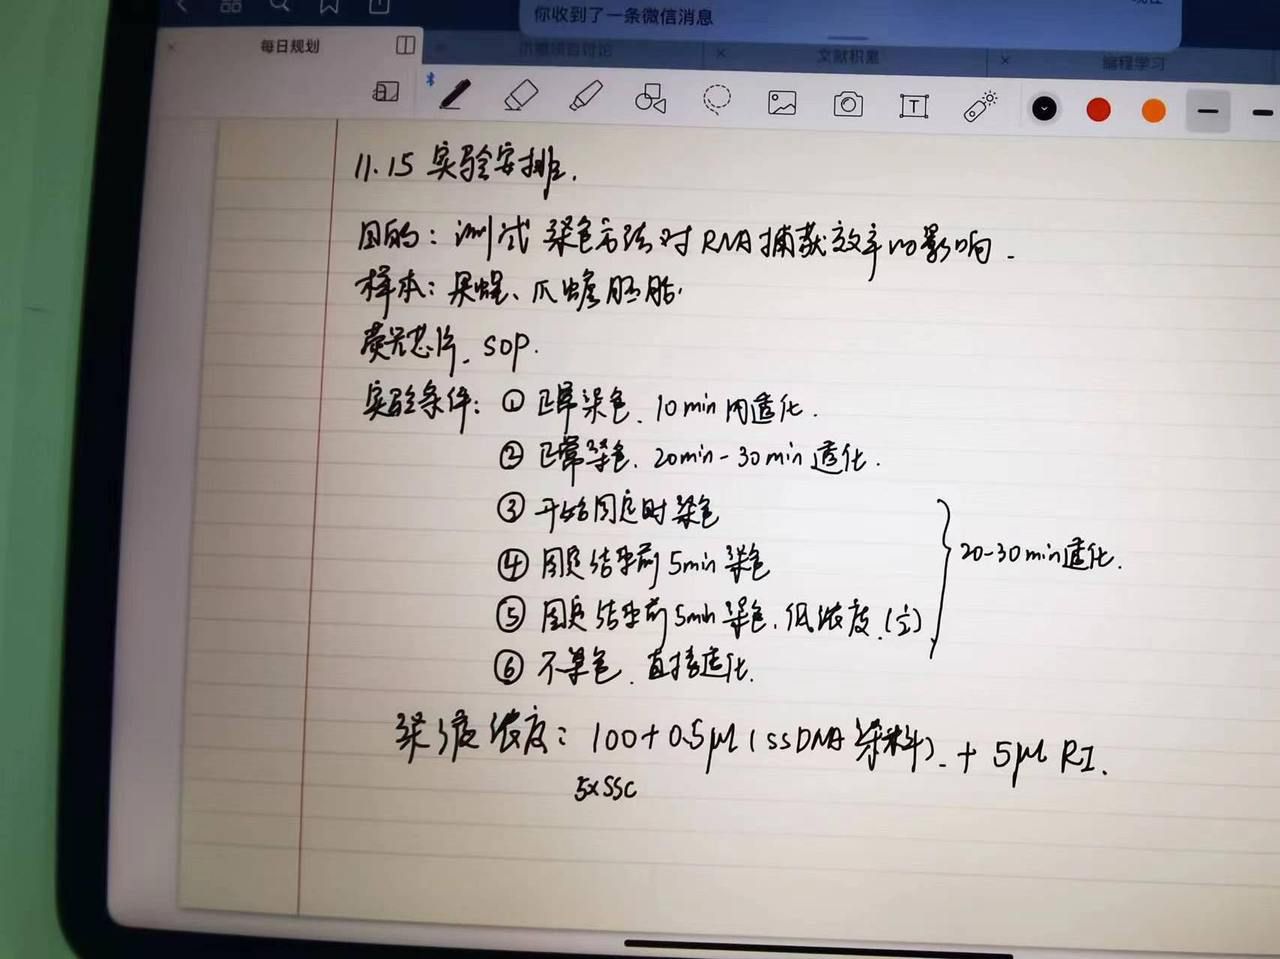 现在
你收到了一条微信消息
每日规划
文献积累
编程学习
11.15 实验安排.
目的: 测试染色方法对RNA捕获效率的影响.
样本: 果蝇、爪蟾胚胎.
荧光芯片. SOP.
实验条件: ① 正常染色. 10min 内透化.
② 正常染色. 20min-30min透化.
③ 开始固定时染色
④ 固定结束前5min染色
20-30min透化.
⑤ 固定结束前5min染色. 低浓度. (注)
⑥ 不染色. 直接透化.
染液浓度: 100+0.5μl (ssDNA染料). + 5μl RI.
5xSSC